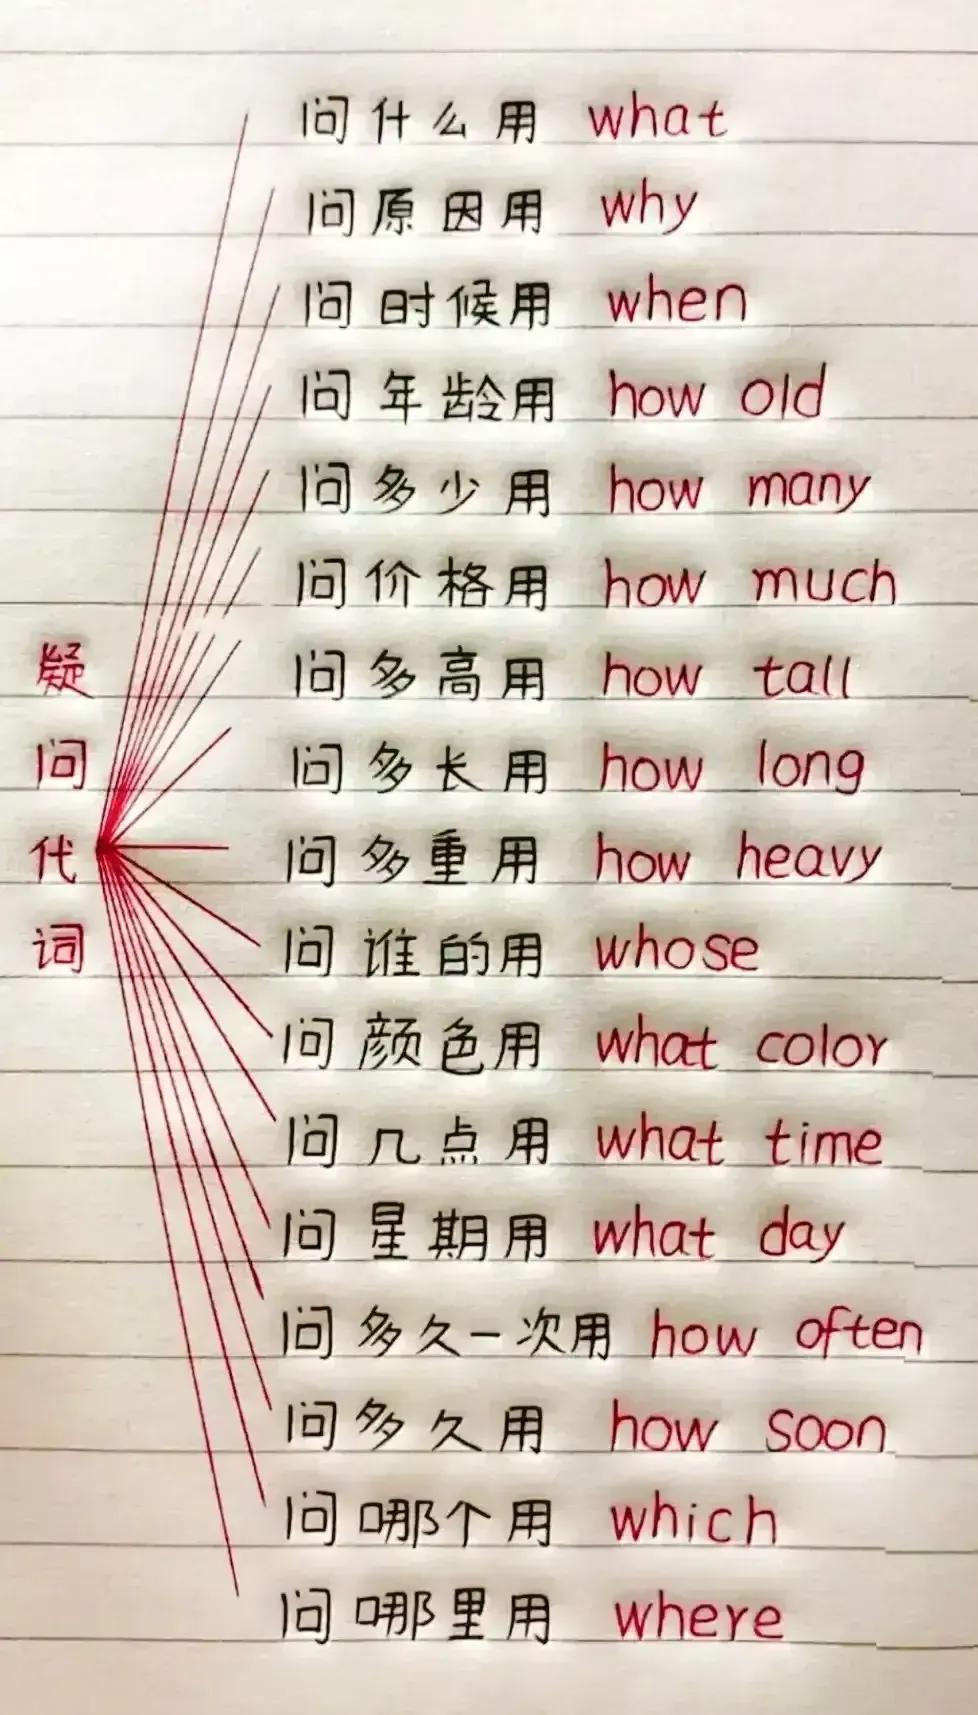 问什么用 what
问原因用 why
问时候用 when
问年龄用 how old
问多少用 how many
问价格用 how much
问多高用 how tall
问多长用 how long
问多重用 how heavy
问谁的用 whose
问颜色用 what color
问几点用 what time
问星期用 what day
问多久一次用 how often
问多久用 how soon
问哪个用 which
问哪里用 where
疑问代词